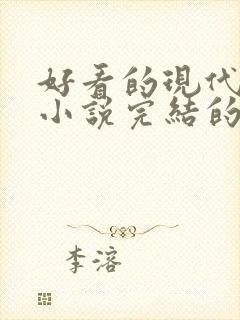 好看的現代
小說完結的
李溶